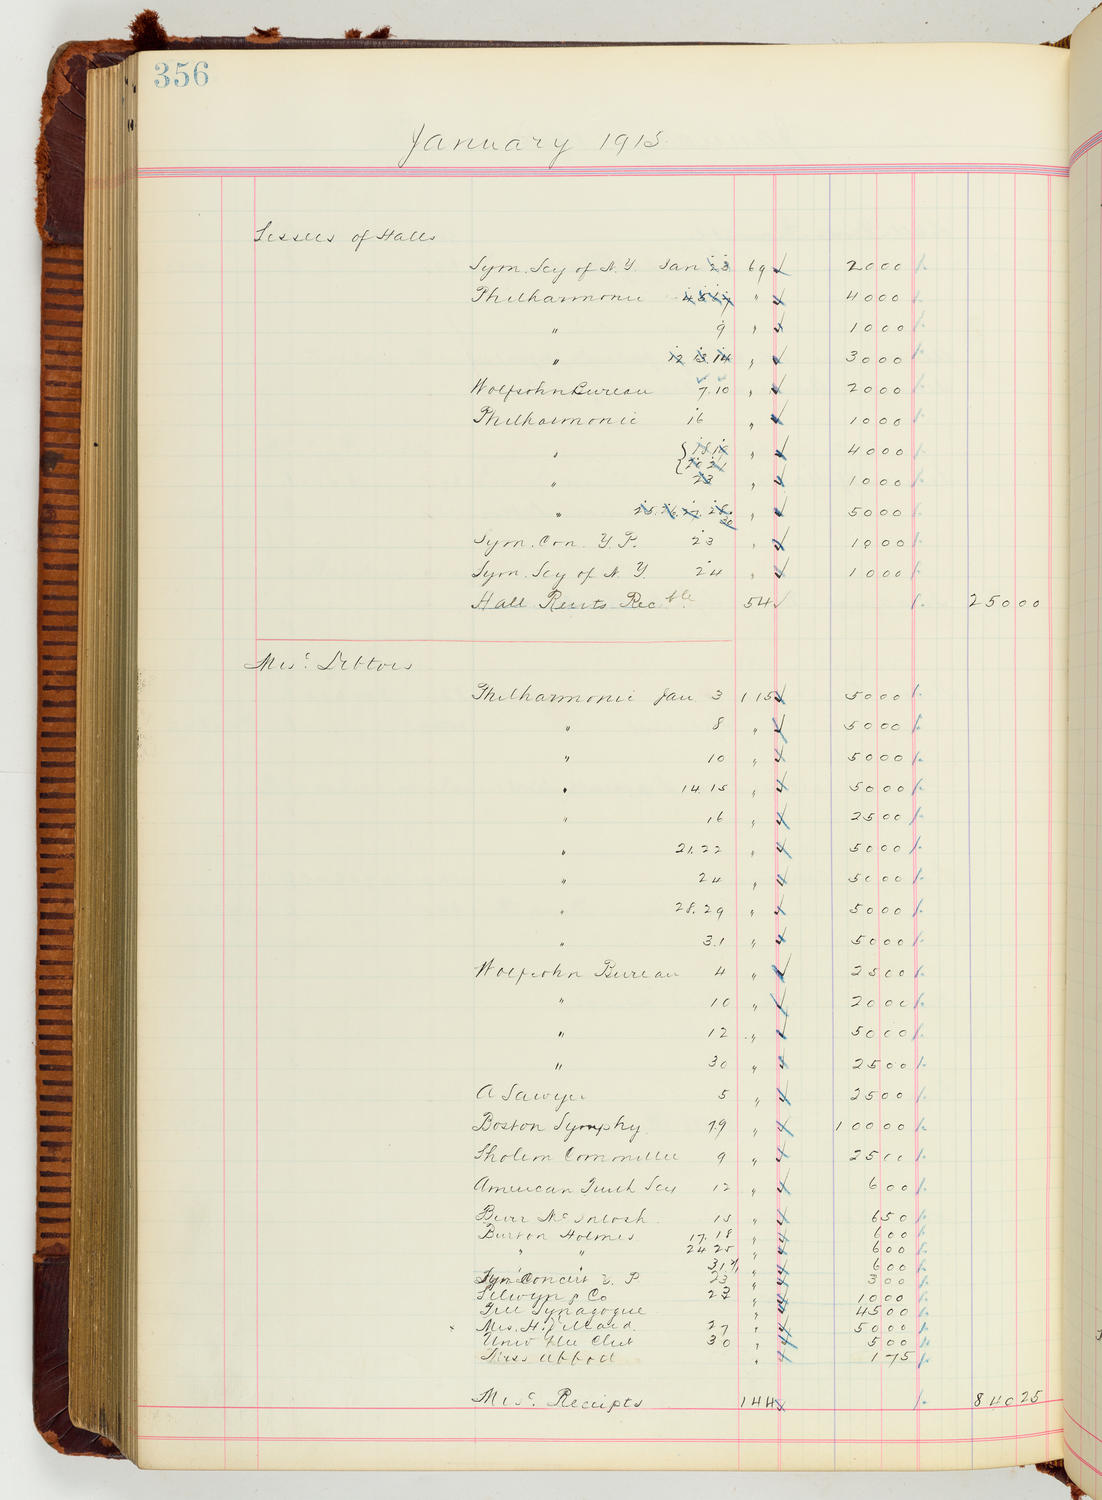 356
January 1915
Lessees of Halls
Sym. Scy of N.Y. Jan 23 69 2000
Philharmonic " 4000
" 9 " 1000
" 12 13 14 " 3000
Wolfsohn Bureau 7.10 " 2000
Philharmonic 16 " 1000
" 18 19 " 4000
20 21
" 23 " 1000
" 25. 26. 27. 28. 30 " 5000
Sym. Con. Y.P. 23 " 1000
Sym. Scy of N.Y. 24 " 1000
Hall Rents Rec ble 54 25000
Misc. Debtors
Philharmonic Jan 3 115 5000
" 8 " 5000
" 10 " 5000
" 14.15 " 5000
" 16 " 2500
" 21.22 " 5000
" 24 " 5000
" 28.29 " 5000
" 31 " 5000
Wolfsohn Bureau 4 " 2500
" 10 " 2000
" 12 " 5000
" 30 " 2500
A Sawyer 5 " 2500
Boston Symphy. 7.9 " 10000
Sholem Committee 9 " 2500
American Scy 12 " 600
Burr McIntosh 15 " 650
Burton Holmes 17.18 " 600
" " 24 25 " 600
31 " 600
Sym Concert Y. P 23 " 300
Selwyn & Co " 1000
Free Synagogue " 4500
Mrs. H. 27 " 5000
Univ Glee Club 30 " 500
Miss Abbod " 175
Misc. Receipts 144 84025